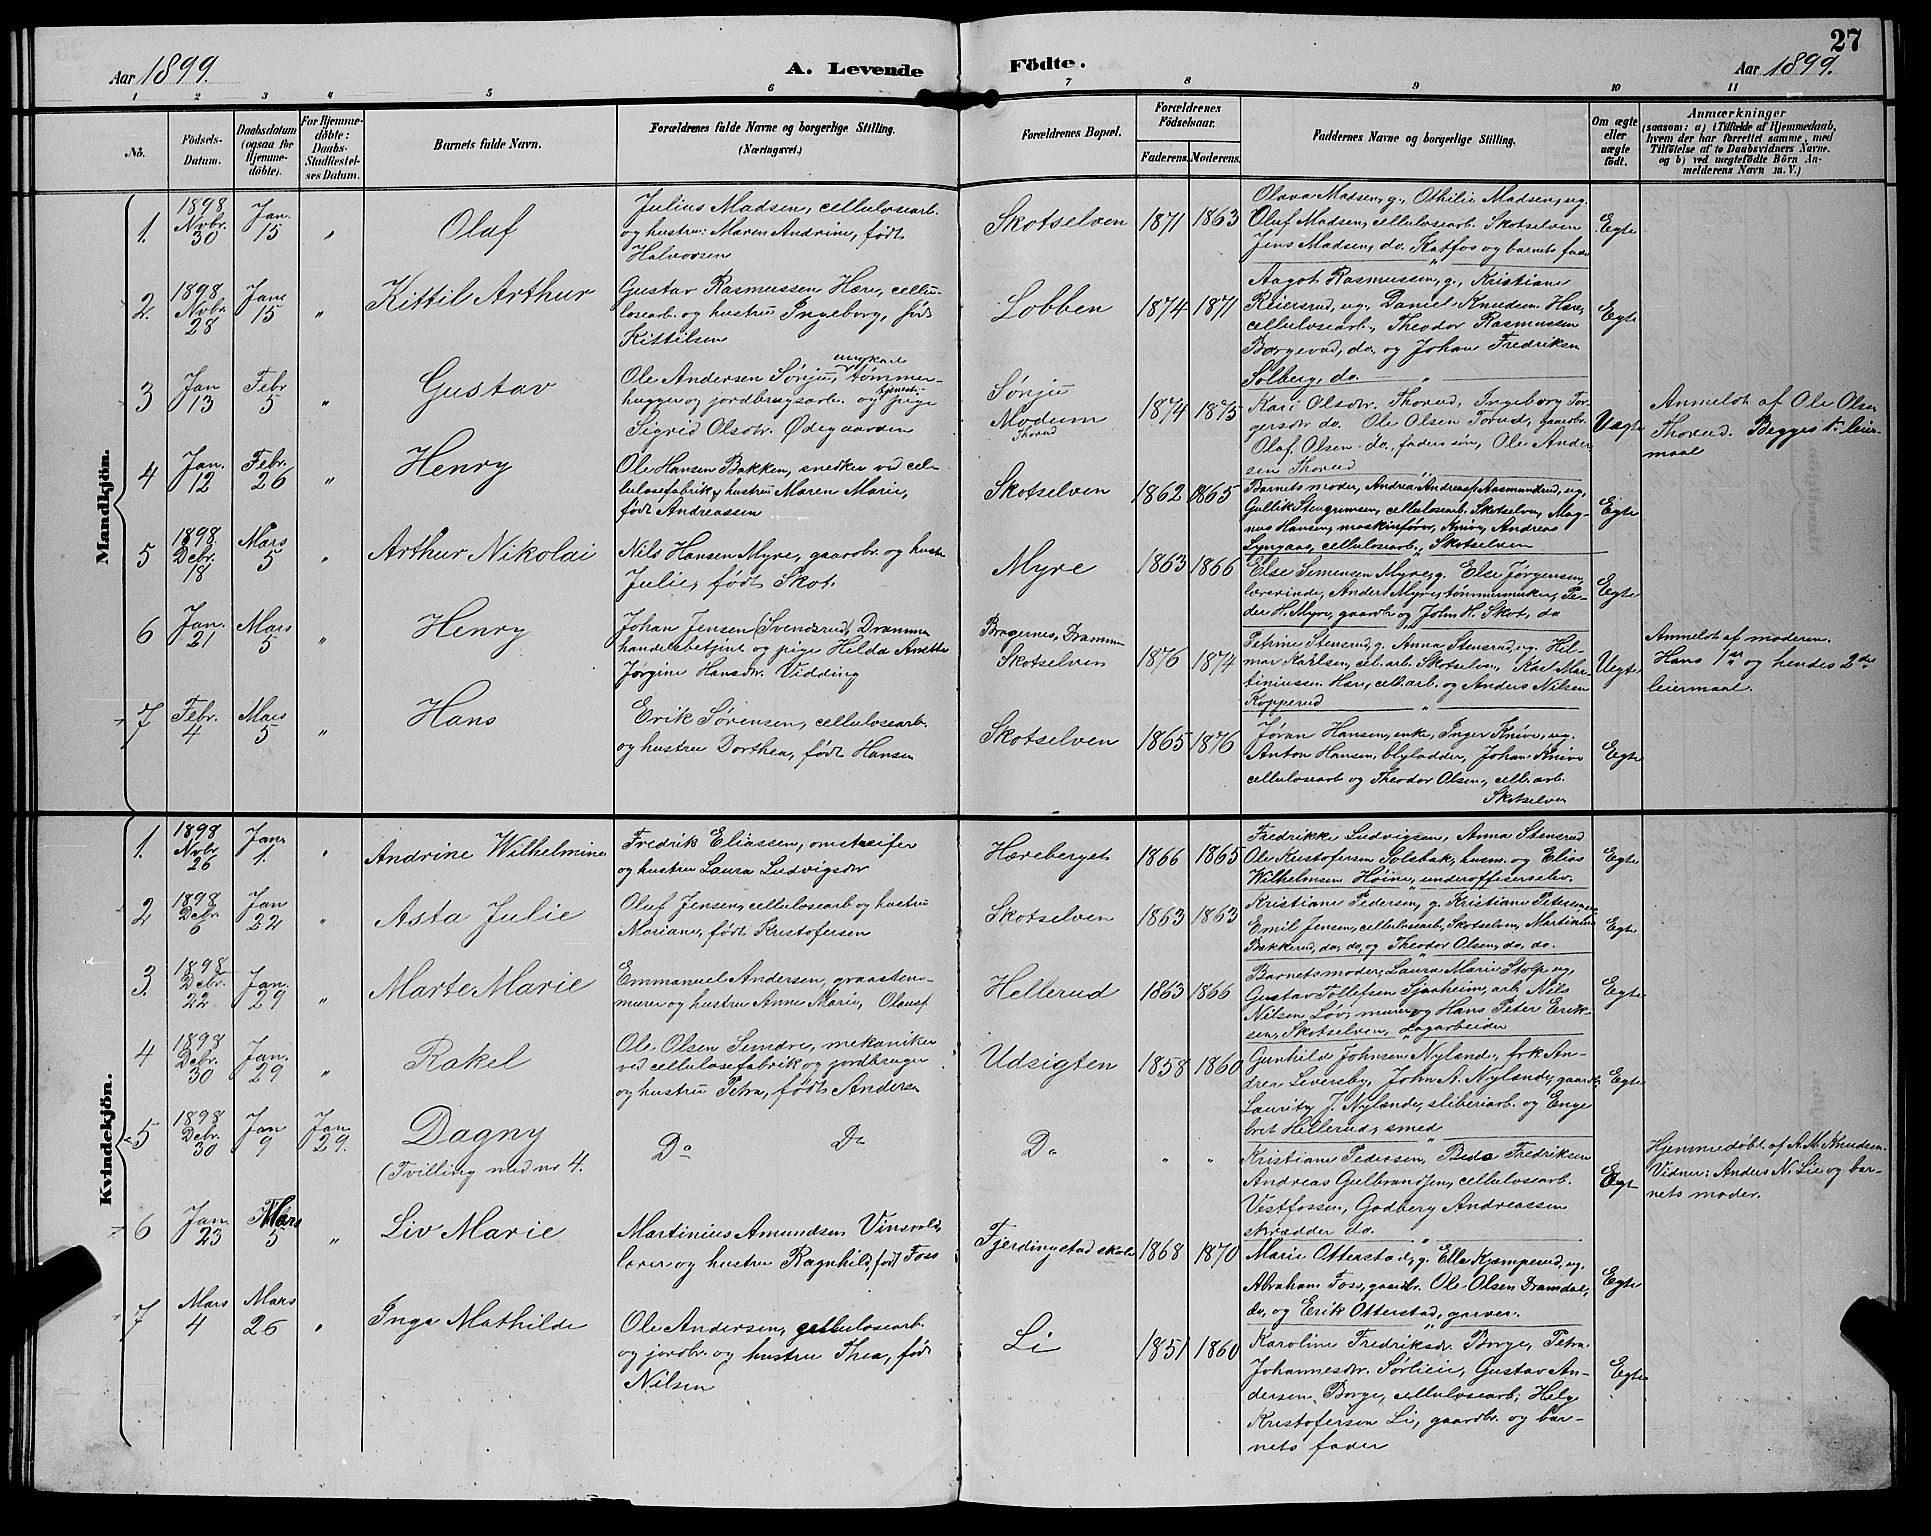 27
Aar 1899.
A. Levende Födte.
Aar 1899.
1 2 3 4 5 6 7 8 9 10 11
No.
Födsels-
Datum.
Daabsdatum
(ogsaa for
Hjemme-
döbte).
For Hjemme-
döbte:
Daabs-
Stadfæstel-
ses Datum.
Barnets fulde Navn.
Forældrenes fulde Navne og borgerlige Stilling.
(Næringsvei.)
Forældrenes Bopæl.
Forældrenes
Födselsaar.
Faderens. Moderens.
Faddernes Navne og borgerlige Stilling.
Om ægte
eller
uægte
födt.
Anmærkninger
(saasom: a) i Tilfælde af Hjemmedaab,
hvem der har forrettet samme, med
Tilföielse af to Daabsvidners Navne,
og b) ved uægtefödte Börn An-
melderens Navn m. V.)
Mandkjön.
1.
1898
Novbr.
30
Jan.
15
"
Olaf
Julius Madsen, cellulosearb.
og hustru: Maren Andrine, født
Halvorsen
Skotselven
1871
1863
Olava Madsen, g., Othilie Madsen, ug.
Oluf Madsen, cellulosearb. Skotselven
Jens Madsen, do. Katfos og barnets fader
Egte
2.
1898
Novbr.
28
Jan.
15
"
Kittil Arthur
Gustav Rasmussen Hære, cellu-
losearb. og hustru Ingeborg, født
Kittilsen
Lobben
1874
1871
Aagot Rasmussen, g., Kristiane
Reiersrud, ug., Daniel Knudsen Hære,
cellulosearb., Theodor Rasmussen
Borgerud, do. og Johan Fredriksen
Solberg, do.
Egte
3
Jan
13
Febr
5
"
Gustav
Ole Andersen Sønju, ungkarl tømmer-
hugger og jordbrugsarb. og tjeneste- pige
Sigrid Olsdtr. Ødegaarden
Sønju
Modum
Thorud
1874
1875
Kari Olsdtr. Thorud, Ingeborg Tor-
gersdtr do. Ole Olsen Torud, gaardbr.
Olaf Olsen do., faders søn, Ole Ander-
sen Thorud
Uægte
Anmeldt af Ole Olsen
Thorud. Begges 1ste leier-
maal
4
Jan.
12
Febr.
26
"
Henry
Ole Hansen Bakken, snedker ved cel-
lulosefabrik og hustru Maren Marie,
født Andreassen
Skotselven
1862
1865
Barnets moder, Andrea Andreasd. Aasmundrud, ug.
Gullik Stengrimsen, cellulosearb. Skotselven, Mag-
nus Hansen, maskinfører, Knive, Andreas
Lyngaas, cellulosearb., Skotselven
Egte
5
1898
Debr.
18
Mars
5
"
Arthur Nikolai
Nils Hansen Myre, gaardbr. og hustru
Julie, født Skot.
Myre
1863
1866
Else Simensen Myre, g. Else Jørgensen,
lærerinde, Anders Myre, tømmermerker, Pe-
der H. Myre, gaardbr. og John H. Skot, do
Egte
6
Jan.
21
Mars
5
"
Henry
Johan Jensen (Svendsrud, Drammen
handelsbetjent og pige Hilda Anette
Jørgine Hansdtr. Vidding
Bragernes, Drammen
Skotselven
1876
1874
Petrine Stensrud, g. Anna Stensrud, ug. Hil-
mar Karlsen, cel.arb. Skotselven, Karl Mar-
tiniussen Hære, cell.arb. og Anders Nilsen
Kopperud
Uegte
Anmeldt af moderen.
Hans 1ste og hendes 2det
leiermaal.
7
Febr.
4
Mars
5
"
Hans
Erik Sørensen, cellulosearb.
og hustru Dorthea, født Hansen
Skotselven
1865
1876
Jøran Hansen, enke, Inger Knive, ug.
Anton Hansen, blylodder, Johan Knive
cellulosearb og Theodor Olsen, cell.arb.
Skotselven
Egte
Kvindekjön.
1.
1898
Novbr.
26
Jan.
1.
"
Andrine Wilhelmine
Fredrik Eliassen, omstreifer
og hustru Laura Ludvigsdtr
Hæreberget
1866
1865
Fredrikke Ludvigsen, Anna Stensrud
Ole Kristofersen Solsbak, husm. og Elias
Wilhelmsen Høine, underofficerselev.
Egte
2
1898
Debr.
6
Jan
22
"
Asta Julie
Oluf Jensen, cellulosearb og hustru
Mariane, født Kristofersen
Skotselven
1863
1863
Kristiane Pedersen, g. Kristiane Petersen,
Emil Jensen, cellulosearb, Skotselven, Martinius
Bakkerud, do, do, og Theodor Olsen, do, do.
Egte
3.
1898
Debr.
22
Jan.
29
"
Marte Marie
Emmanuel Andersen, graasten-
murer og hustru Anne Marie, Olausd
Hellerud
1863
1866
Barnets moder, Laura Marie Stolp ug,
Gustav Tollefsen Sjaaheim, arb. Nils
Nilsen Løv, murer og Hans Peter Erik-
sen, Skotselven, dagarbeider
Egte
4
1898
Debr.
30
Jan.
29
"
Rakel
Ole Olsen Semdre, mekaniker
ved cellulosefabrik og jordbruger
og hustru Petra, født Andersen
Udsigten
1858
1860
Gunhild Johnsen Nylænde, frk An-
drea Leversby, John A. Nylænde, gaardbr.
Lauritz J. Nylænde, sliberiarb. og Enge
bret Hellerud, smed
Egte
5
1898
Debr.
30
Jan
9
Jan
29.
Dagny
(Tvilling med nr 4.
Do Do
Do
" "
Kristiane Pedersen, Beda Fredriksen
Andreas Gulbrandsen, cellulosearb.
Vestfossen, Godberg Andreassen
skrædder do.
Egte
Hjemmedøbt af A. M. Knudsen.
Vidner: Anders N. Lie og bar-
nets moder.
6
Jan.
23
Mars
5
"
Liv Marie
Martinius Amundsen Vinsvold,
lærer og hustru Ragnhild, født Foss
Fjerdingstad skole
1868
1870
Marie Otterstad, g. Ella Kjæmperud, ug.
Abraham Foss, gaardbr. Ole Olsen Dramdal,
do, og Erik Otterstad, garver.
Egte
7
Mars
4
Mars
26
"
Inga Mathilde
Ole Andersen, cellulosearb.
og jordbr. og hustru Thea, født
Nilsen
Li
1851
1860
Karoline Fredriksdr. Borge, Petra
Johannesdr. Sørlieie, Gustav An-
dersen Borge, cellulosearb, Helge
Kristofersen Li, gaardbr. og bar-
nets fader
Egte